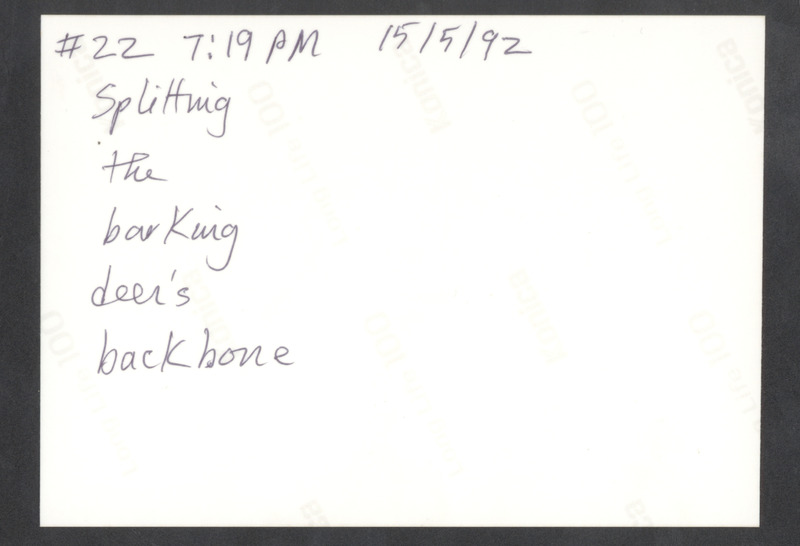 #22 7:19 PM 15/5/92
Splitting
the
barking
deer's
backbone